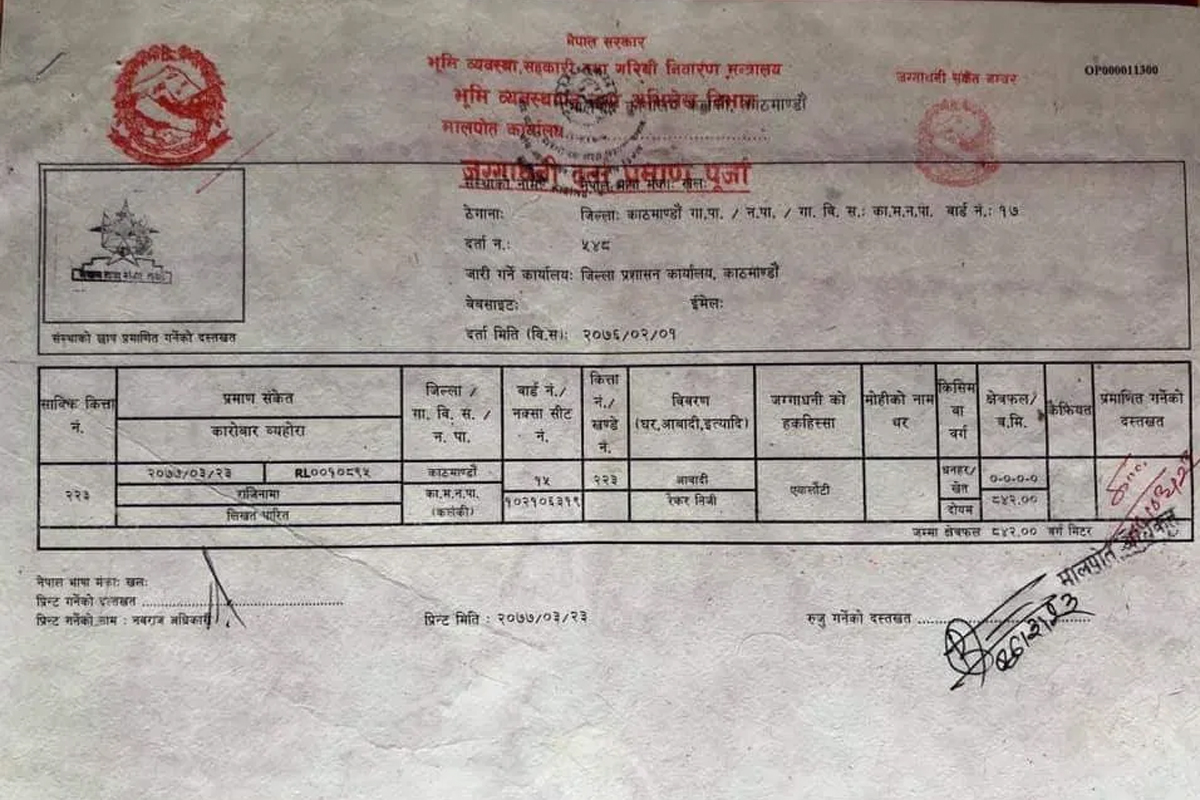 नेपाल सरकार
भूमि व्यवस्था, सहकारी तथा गरिबी निवारण मन्त्रालय
जग्गाधनी संकेत नम्बर
OP000011300
भूमि व्यवस्थापन तथा अभिलेख विभाग
काठमाण्डौ
मालपोत कार्यालय
जग्गाधनी दर्ता प्रमाण पूर्जा
संस्थाको नाम: नेपाल भाषा मंका: खल:
ठेगाना: जिल्ला: काठमाण्डौ गा.पा. / न.पा. / गा. वि. स.: का.म.न.पा. वार्ड नं.: १७
दर्ता न.: ५४८
जारी गर्ने कार्यालय: जिल्ला प्रशासन कार्यालय, काठमाण्डौ
वेबसाइट: ईमेल:
दर्ता मिति (वि.स): २०७६/०२/०१
संस्थाको छाप प्रमाणित गर्नेको दस्तखत
साविक कित्ता नं.
प्रमाण संकेत
कारोबार व्यहोरा
जिल्ला / गा. वि. स. / न. पा.
वार्ड नं./ नक्सा सीट नं.
कित्ता नं./ खण्डे नं.
विवरण (घर,आबादी,इत्यादि)
जग्गाधनी को हकहिस्सा
मोहीको नाम थर
किसिम वा वर्ग
क्षेत्रफल/ ब.मि.
कैफियत
प्रमाणित गर्नेको दस्तखत
२२३
२०७७/०३/२३ RL००१०८९५
राजिनामा
लिखत पारित
काठमाण्डौ
का.म.न.पा. (कलंकी)
१५
१०२१०६३१९
२२३
आवादी
रेकर निजी
एयासेटी
धनहर/ खेत
दोयम
०-०-०-०
८४२.००
जम्मा क्षेत्रफल ८४२.०० वर्ग मिटर
मालपोत अधिकृत
नेपाल भाषा मंका: खल:
प्रिन्ट गर्नेको दस्तखत
प्रिन्ट गर्नेको नाम : नवराज अधिकारी
प्रिन्ट मिति : २०७७/०३/२३
रुजु गर्नेको दस्तखत